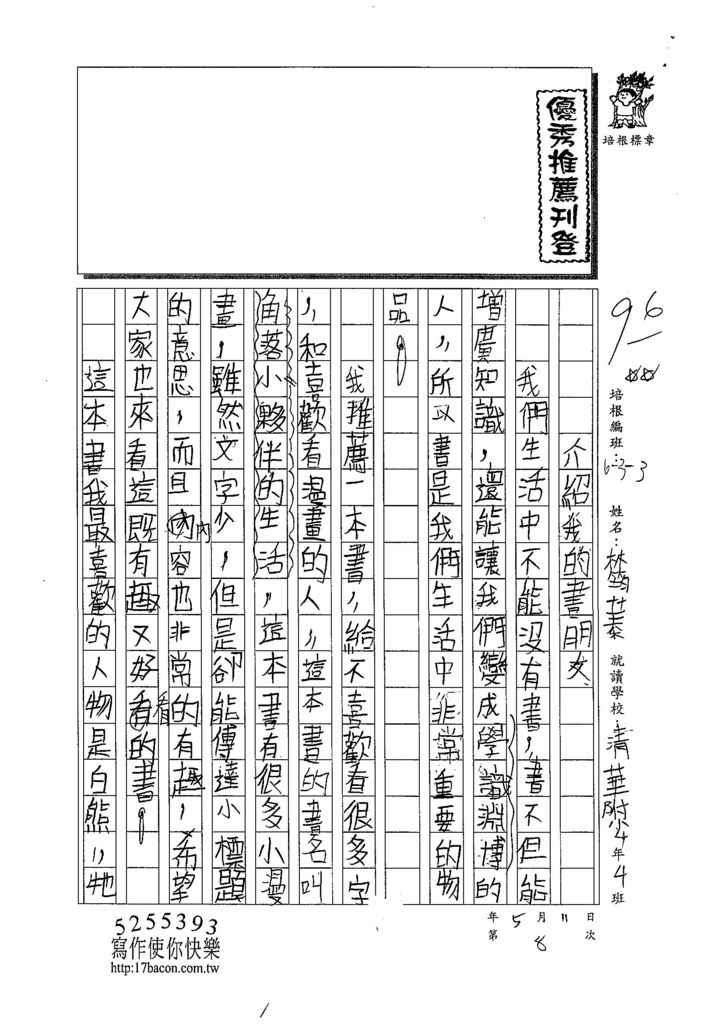 優秀推薦刊登
培根標章
96
培根編班：6-3-3 姓名：林 蓁 就讀學校：清華附小4年4班
年5月11日
第8次
介紹我的書朋友
我們生活中不能沒有書，書不但能
增廣知識，還能讓我們變成學識淵博的
人，所以書是我們生活中非常重要的物
品。
我推薦一本書，給不喜歡看很多字
，和喜歡看漫畫的人，這本書的書名叫
角落小夥伴的生活，這本書有很多小漫
畫，雖然文字少，但是卻能傳達小標題
的意思，而且內容也非常的有趣，希望
大家也來看這既有趣又好看的書。
這本書我最喜歡的人物是白熊，牠
5255393
寫作使你快樂
http:17bacon.com.tw
1